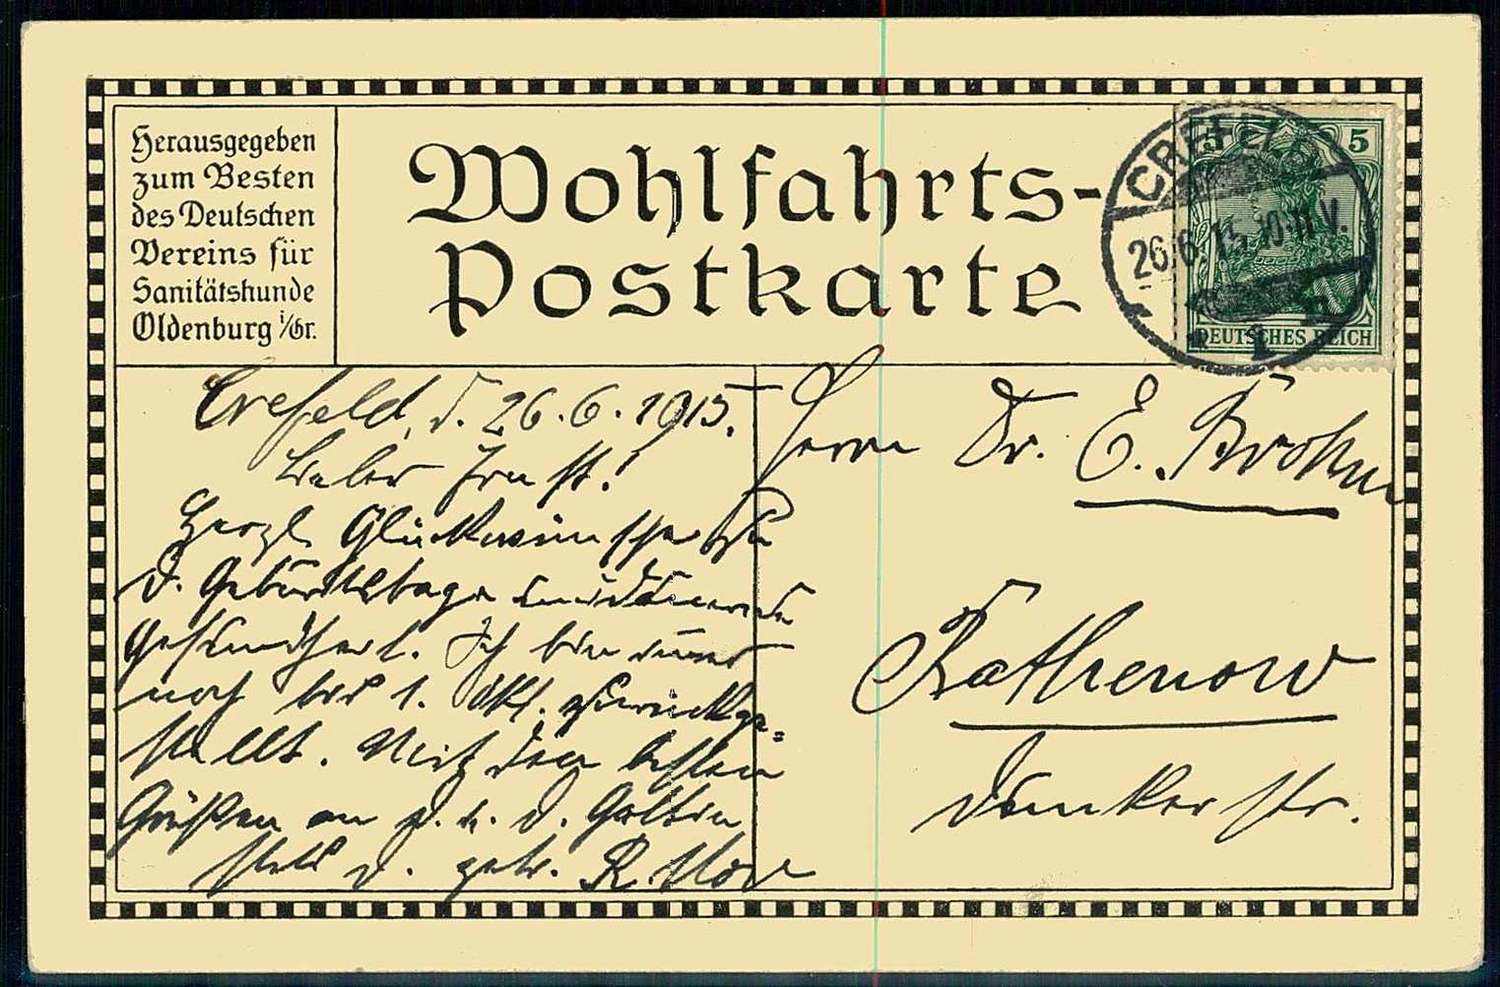 Herausgegeben
zum Besten
des Deutschen
Vereins für
Sanitätshunde
Oldenburg i/Gr.
Wohlfahrts-
Postkarte
5 5
DEUTSCHES REICH
CREFELD
26.6.15. 10-11 V.
1
Crefeld, d. 26.6.1915.
Lieber Ernst!
Herzl. Glückwünsche
d. Geburtstage
Gesundheit. Ich bin
noch bis 1. Okt. zurückge=
stellt. Mit den besten
Grüßen an d. Gattin
stets d. getr. R.
Herrn Dr. E. Brohm
Rathenow
Dunkerstr.